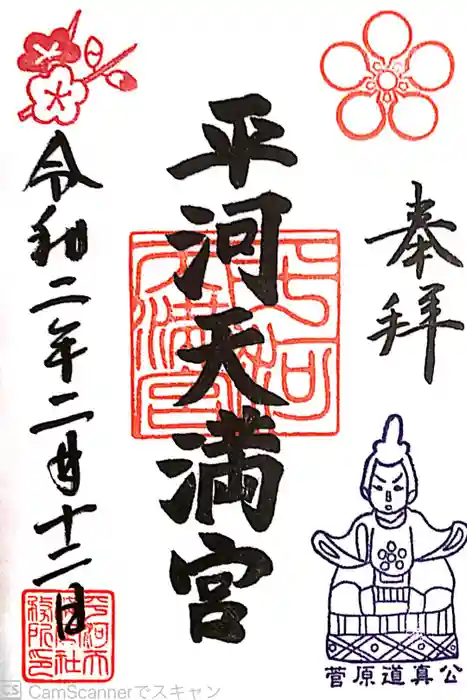 奉拝
平河天満宮
令和二年二月十二日
平河天満宮
平河天満宮社務所印
菅原道真公
CS CamScannerでスキャン